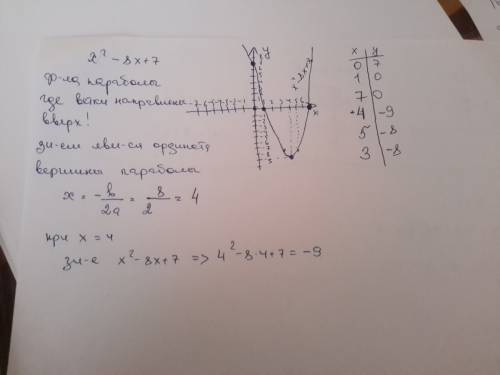 x² - 8x + 7
ф-ла параболы
где ваки направлены
вверх!
зн-ем явл-ся ордината
вершины параболы
x = -b/2a = 8/2 = 4
при x = 4
зн-е x² - 8x + 7 => 4² - 8·4 + 7 = -9
y
x
x² - 8x + 7
x y
0 7
1 0
7 0
4 -9
5 -8
3 -8